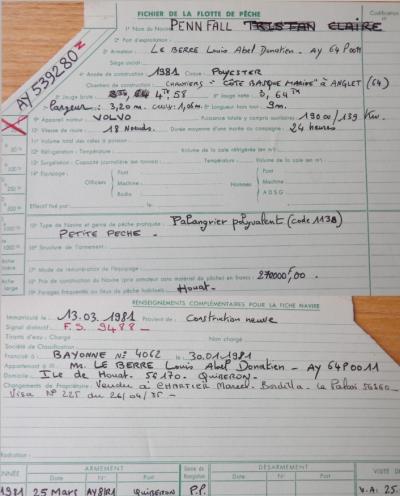 FICHIER DE LA FLOTTE DE PÊCHE
Codification
1° Nom du Navire PENN FALL TRISTAN CLAIRE
2° Port d'exploitation :
3° Armateur : LE BERRE Louis Abel Donatien - AY 64P0011
Siège social :
AY 539280 Z
4° Année de construction : 1981 Coque : POLYESTER
Chantiers de construction : CHANTIERS "CÔTE BASQUE MARINE" à ANGLET (64)
5° Jauge brute : 4 Tx 58 6° Jauge nette : 3,64 Tx
Largeur : 3,20 m. creux : 1,06 m. 7° Longueur hors tout : 9m.
8° Appareil moteur : VOLVO Puissance totale y compris auxiliaires : 190 CV / 139 Kw.
9° Vitesse de route : 18 Nœuds. Durée moyenne d'une marée ou campagne : 24 heures
11° Volume total des cales à poisson :
Volume de la cale réfrigérée (en m³) :
12° Réfrigération - Température :
13° Surgélation - Capacité journalière (en tonnes) :
Température :
Volume de la cale (en m³) :
14° Equipage :
Officiers
Pont
Machine
Radio
Hommes
Pont
Machine
A D S G
Effectif fixé par :
le
15° Type de Navire et genre de pêche pratiquée : Palangrier polyvalent (code 1138)
PETITE PECHE
16° Structure de l'armement :
17° Mode de rémunération de l'équipage :
18° Prix de construction du Navire (prix armateur sans matériel de pêche) en francs : 270000F,00
19° Parages fréquentés ou lieux de pêche habituels : Houat.
RENSEIGNEMENTS COMPLÉMENTAIRES POUR LA FICHE NAVIRE
Immatriculé le : 13.03.1981 Provient de : Construction neuve
Signal distinctif : F.S. 9488 -
Tirants d'eau : Chargé
Non chargé :
Société de Classification :
Francisé à : BAYONNE N° 4062 le 30.01.1981
Appartenant à : M. LE BERRE Louis Abel Donatien - AY 64P0011
Domicile : ILE de Houat. 56170. QUIBERON.
Changements de Propriétaire : Vendu à CHARTIER Marcel. Bordilla. Le Palais 56360 -
Visa N° 225 du 26/04/85 -
Radiation :
ANNÉE
ARMEMENT
DÉSARMEMENT
VISITE D
Date
N°
Port
Genre de Navigation
Date
N°
Port
1981 25 Mars AY81R1 QUIBERON P.P. V.A: 25.